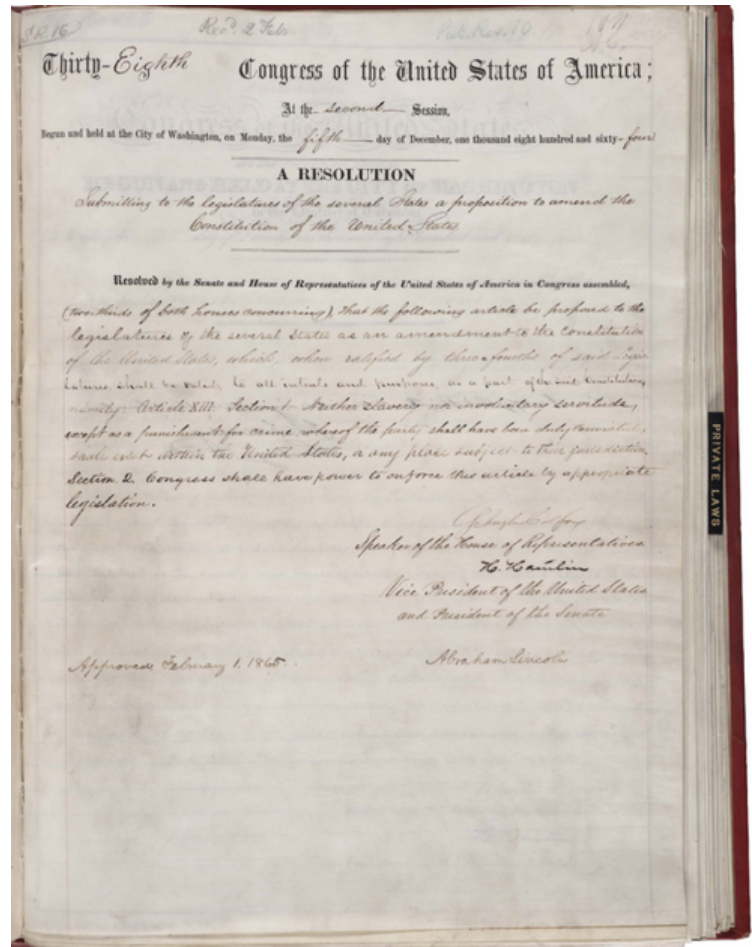 S.R. 16
Rec'd. 2 Feb.
Pub. Res. 10.
Thirty-Eighth Congress of the United States of America;
At the second Session,
Begun and held at the City of Washington, on Monday, the fifth day of December, one thousand eight hundred and sixty-four
A RESOLUTION
Submitting to the legislatures of the several States a proposition to amend the
Constitution of the United States.
Resolved by the Senate and House of Representatives of the United States of America in Congress assembled,
(two-thirds of both houses concurring), that the following article be proposed to the
legislatures of the several States as an amendment to the Constitution
of the United States, which, when ratified by three-fourths of said Legis-
latures, shall be valid, to all intents and purposes, as a part of the said Constitution,
namely: Article XIII. Section 1. Neither slavery nor involuntary servitude,
except as a punishment for crime whereof the party shall have been duly convicted,
shall exist within the United States, or any place subject to their jurisdiction.
Section 2. Congress shall have power to enforce this article by appropriate
legislation.
Schuyler Colfax
Speaker of the House of Representatives.
H. Hamlin
Vice President of the United States
and President of the Senate
Approved February 1. 1865.
Abraham Lincoln
PRIVATE LAWS